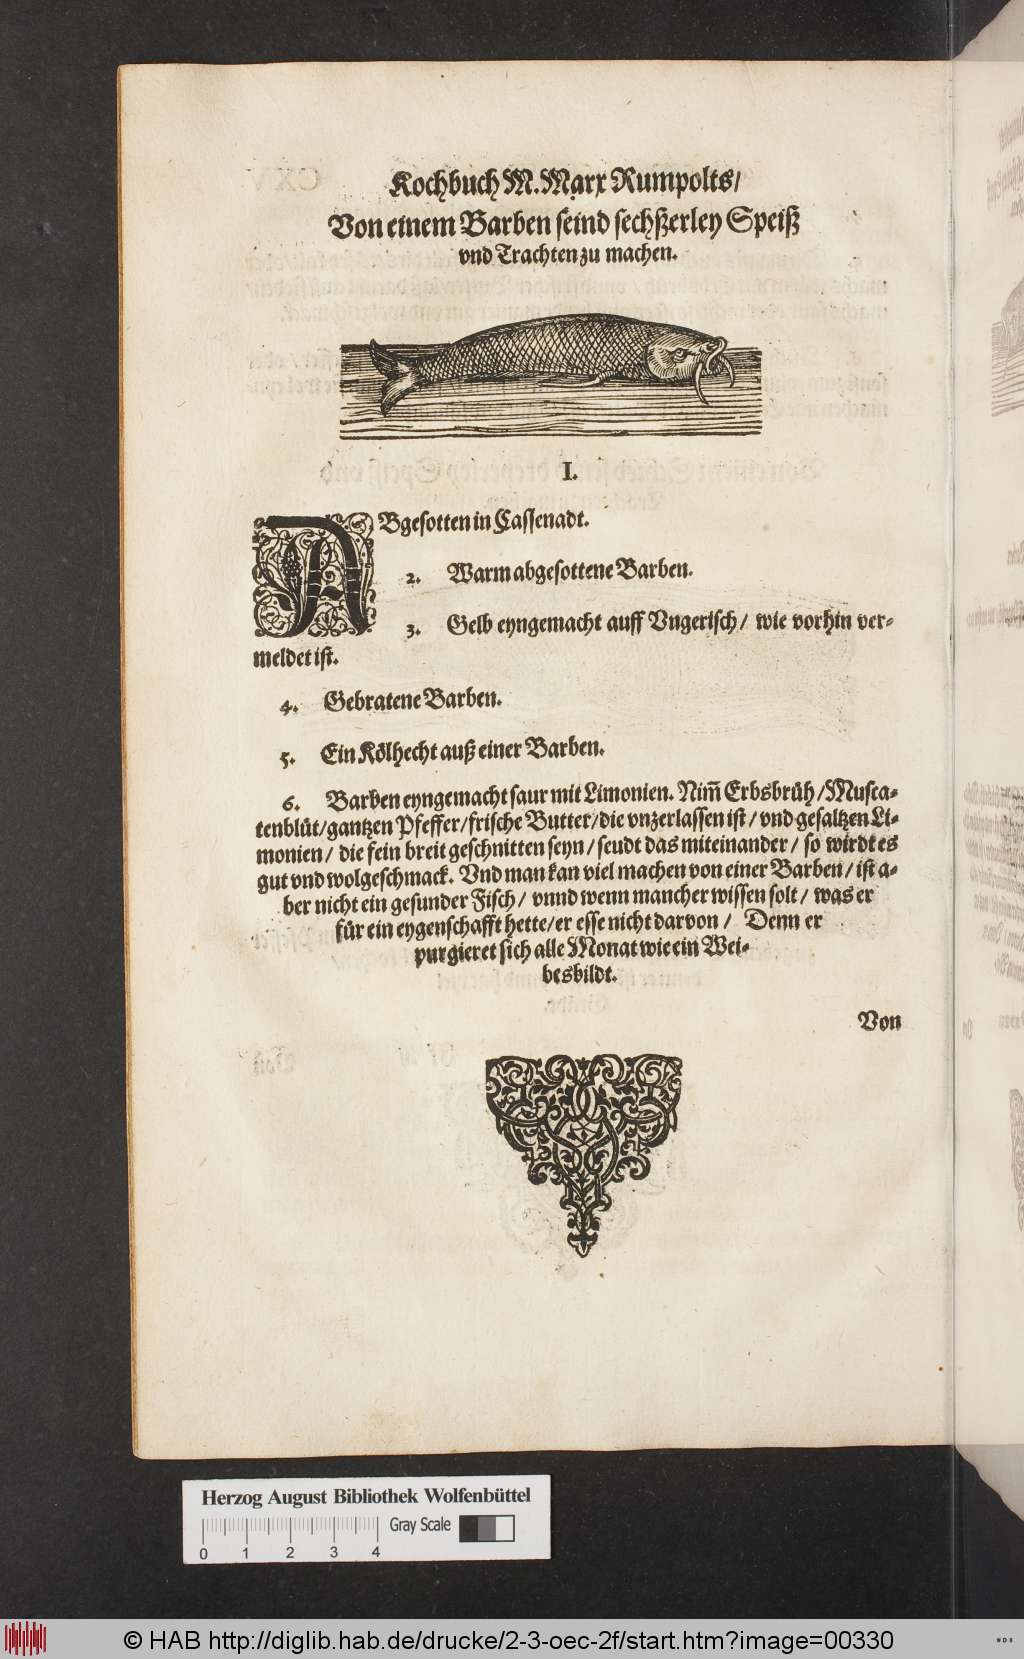 Kochbuch M. Marx Rumpolts/
Von einem Barben seind sechßerley Speiß
vnd Trachten zu machen.
I.
ABgesotten in Cassenadt.
2. Warm abgesottene Barben.
3. Gelb eyngemacht auff Vngerisch/ wie vorhin ver-
meldet ist.
4. Gebratene Barben.
5. Ein Kölhecht auß einer Barben.
6. Barben eyngemacht saur mit Limonien. Nim̃ Erbsbrüh/Musca-
tenblüt/gantzen Pfeffer/frische Butter/die vnzerlassen ist/ vnd gesaltzen Li-
monien/ die fein breit geschnitten seyn/ seudt das miteinander/ so wirdt es
gut vnd wolgeschmack. Vnd man kan viel machen von einer Barben/ ist a-
ber nicht ein gesunder Fisch/ vnnd wenn mancher wissen solt/ was er
für ein eygenschafft hette/er esse nicht darvon/ Denn er
purgieret sich alle Monat wie ein Wei-
besbildt.
Von
Herzog August Bibliothek Wolfenbüttel
Gray Scale
0 1 2 3 4
© HAB http://diglib.hab.de/drucke/2-3-oec-2f/start.htm?image=00330